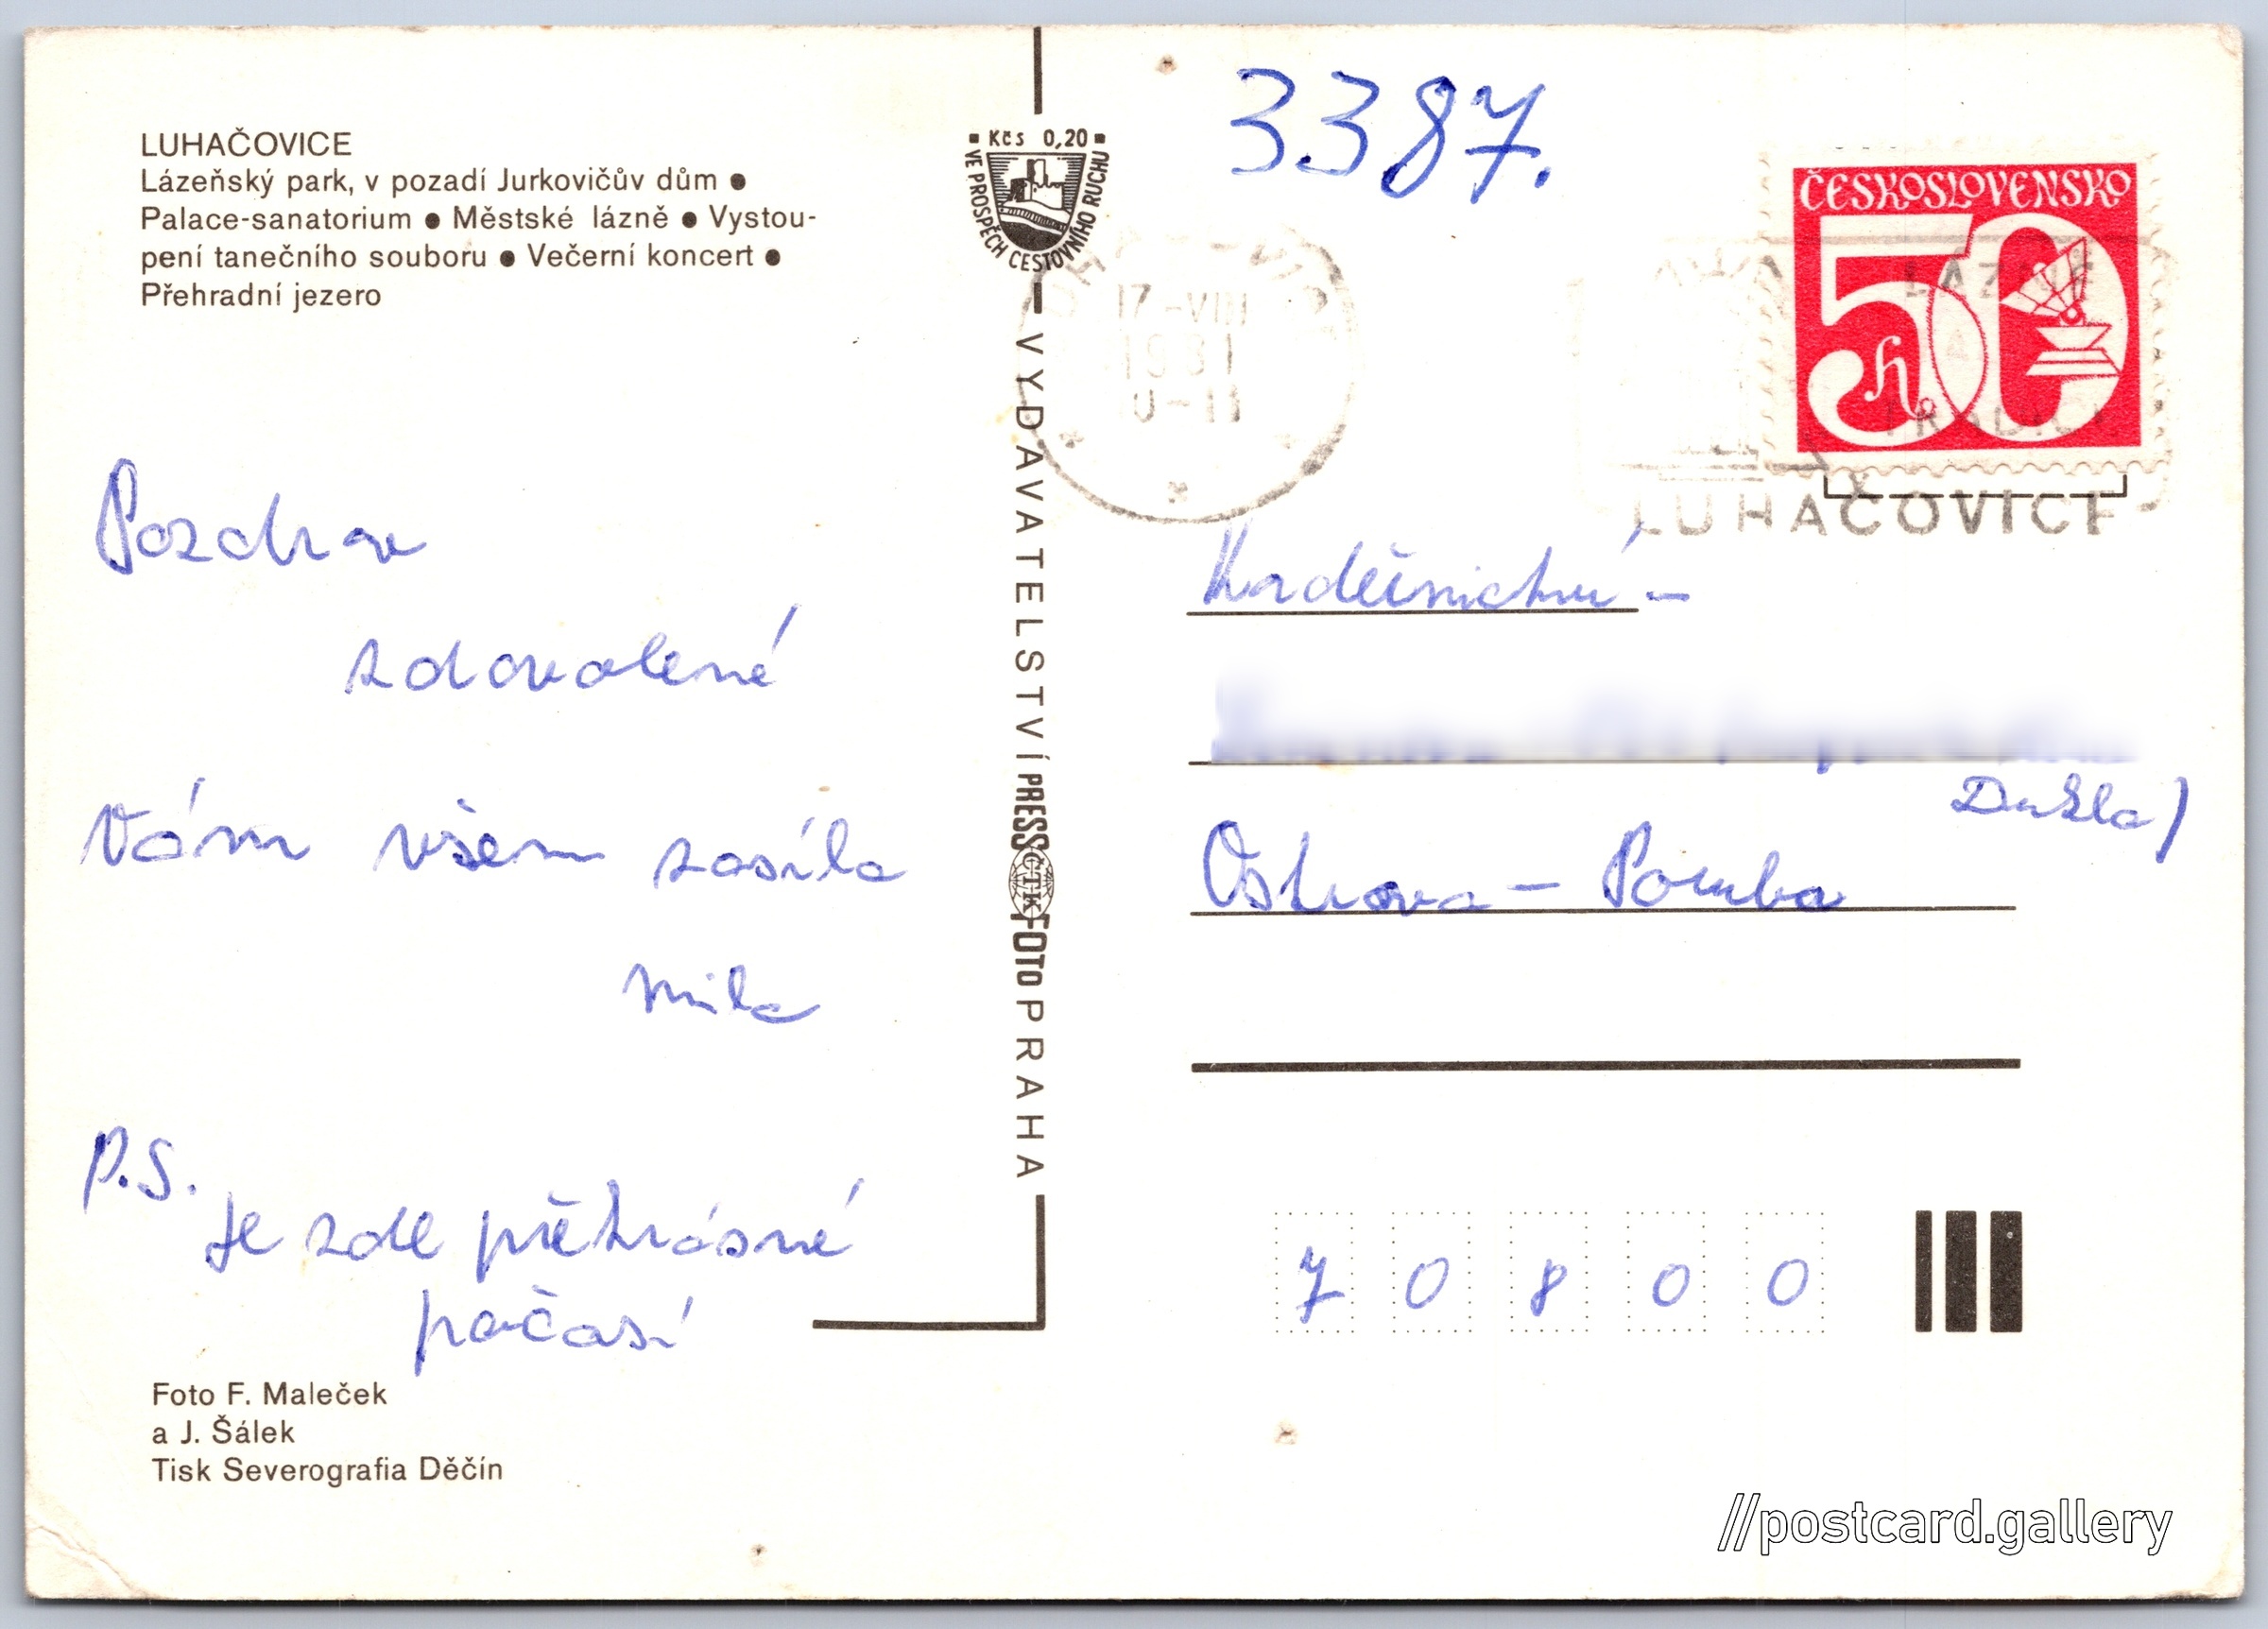 LUHAČOVICE
Lázeňský park, v pozadí Jurkovičův dům ●
Palace-sanatorium ● Městské lázně ● Vystou-
pení tanečního souboru ● Večerní koncert ●
Přehradní jezero
Pozdrav
z dovolené
Vám všem zasíla
Mila
P.S.
Je zde překrásné
počasí
Foto F. Maleček
a J. Šálek
Tisk Severografia Děčín
Kčs 0,20
VE PROSPĚCH CESTOVNÍHO RUCHU
VYDAVATELSTVÍ PRESSFOTO PRAHA
ČTK
3387.
ČESKOSLOVENSKO
50 h
17 -VIII
1981
LÁZNĚ
TRADIC
LUHAČOVICE
Kadeřnictví -
Dukla)
Ostrava - Poruba
70800
//postcard.gallery